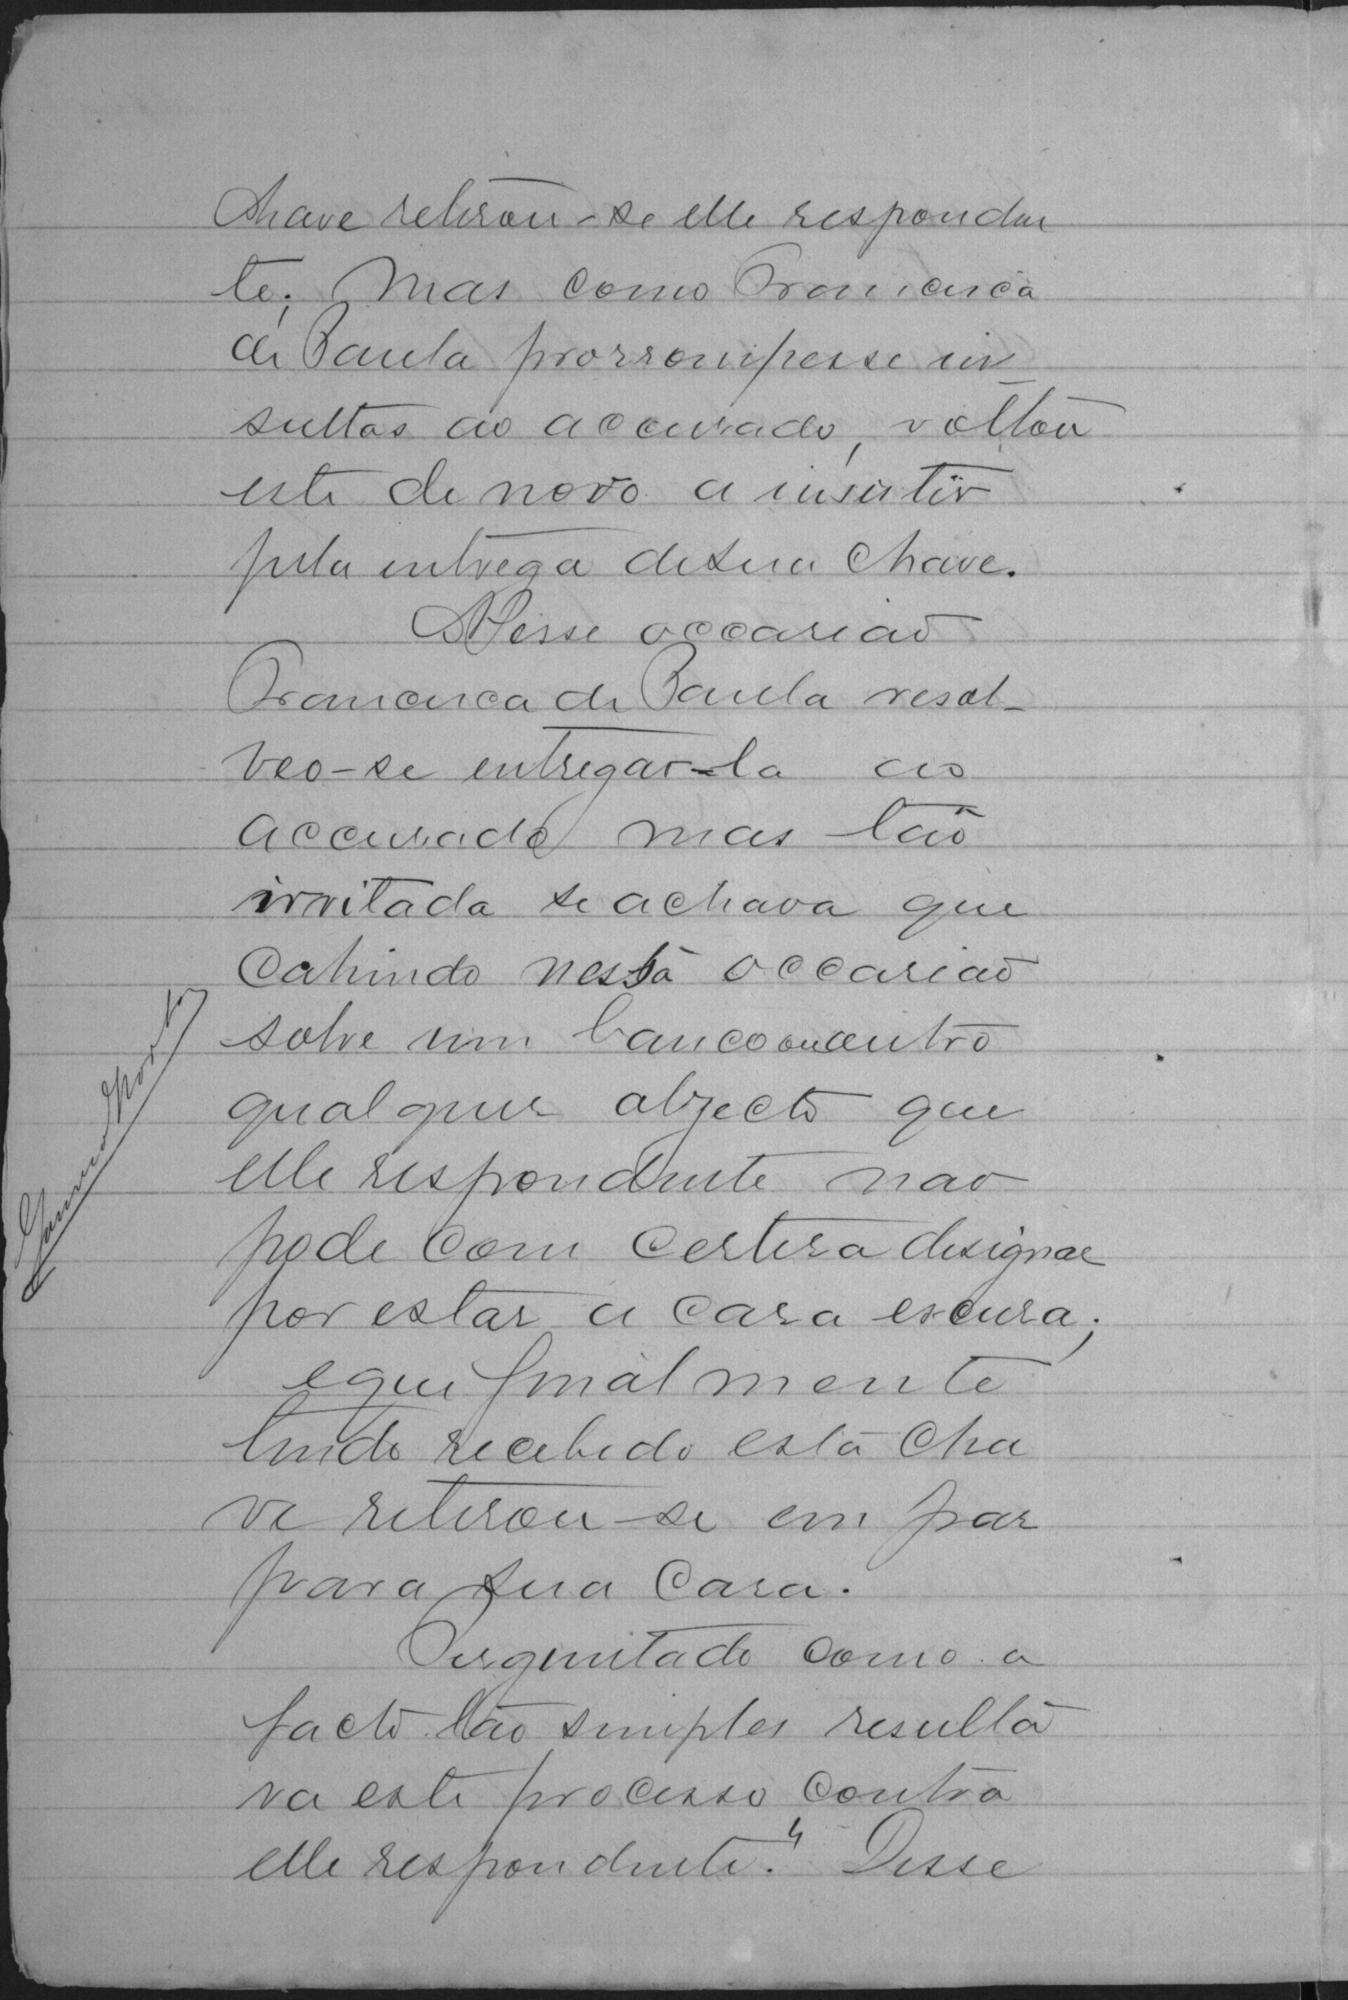 chave retirou-se elle responden
te; mas como Francisca
de Paula prorrompesse in
sultos ao accusado, voltou
este de novo a insistir
pela entrega de sua chave.
Nessa occasião
Francisca de Paula resol-
veo-se entregar-la ao
accusado mas tão
irritada se achava que
cahindo nessa occasião
sobre um banco ou outro
qualquer objecto que
elle respondente não
pode com certesa designar
por estar a casa escura;
e que finalmente
tendo recebido esta cha
ve retirou-se em paz
para sua casa.
Perguntado como a
facto tão simples resulta
va este processo contra
elle respondente? Disse